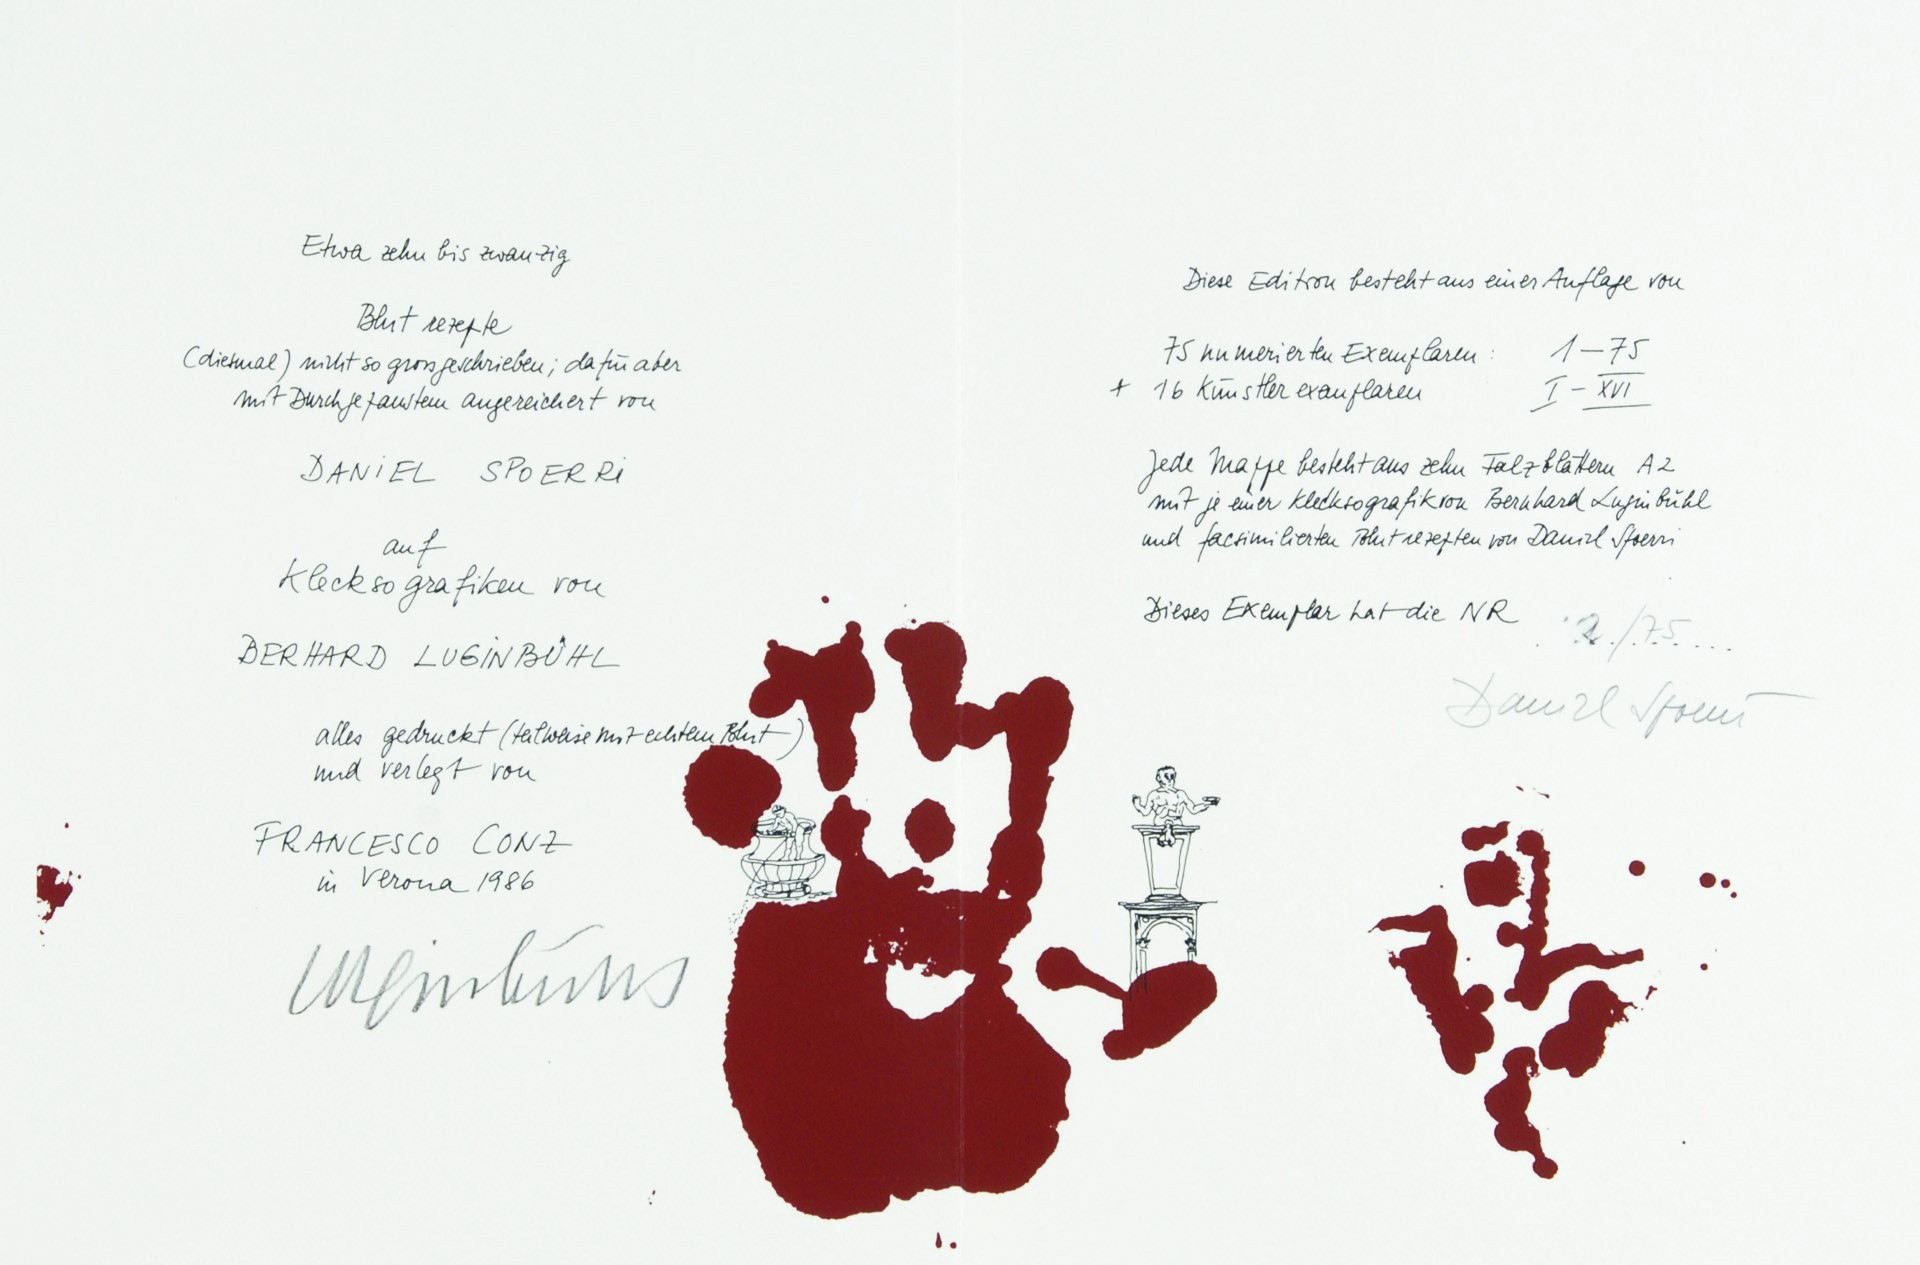 Etwa zehn bis zwanzig
Blut rezepte
(diesmal) nicht so grossgeschrieben; dafür aber
mit Durchgepaustem angereichert von
DANiEL SPOERRi
auf
Klecksografiken von
BERHARD LUGiNBÜHL
alles gedruckt (teilweise mit echtem Blut)
und verlegt von
FRANCESCO CONZ
in Verona 1986
Luginbühl
Diese Edition besteht aus einer Auflage von
75 numerierten Exemplaren: 1–75
+ 16 Künstler exemplaren I – XVI
Jede Mappe besteht aus zehn Falzblättern A2
mit je einer Klecksografik von Bernhard Luginbühl
und facsimilierten Blutrezepten von Daniel Spoerri
Dieses Exemplar hat die NR 2/75
Daniel Spoerri